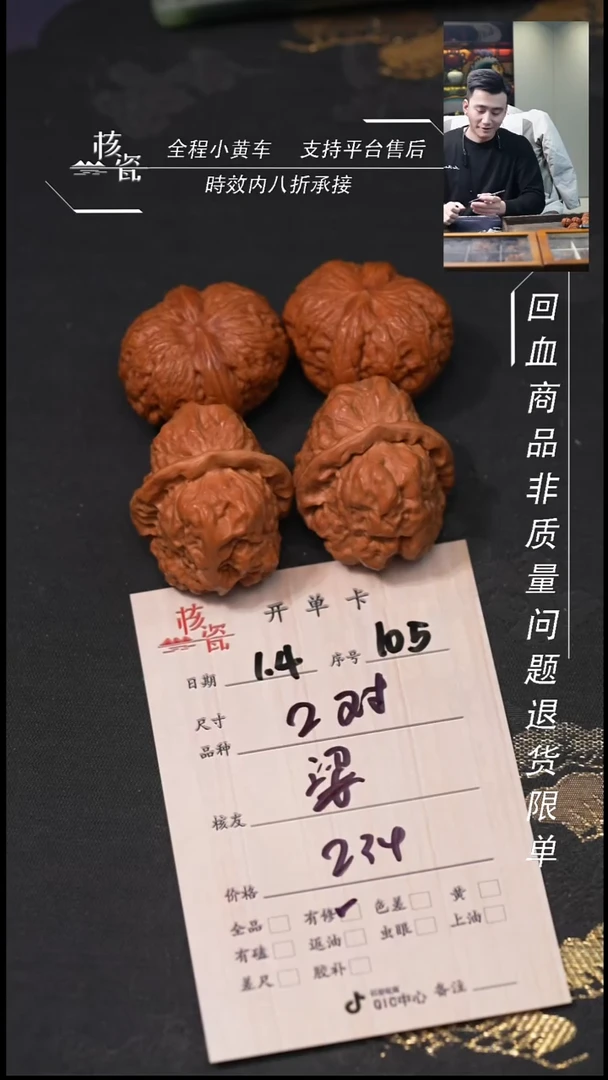 核瓷
全程小黄车 支持平台售后
時效内八折承接
回血商品非质量问题退货限单
核瓷
开单卡
日期 1.4 序号 105
尺寸 2对
品种
梁
核友
234
价格
全品 有修✓ 色差 黄
有磕 返油 虫眼 上油
差尺 胶补
QIC中心 备注